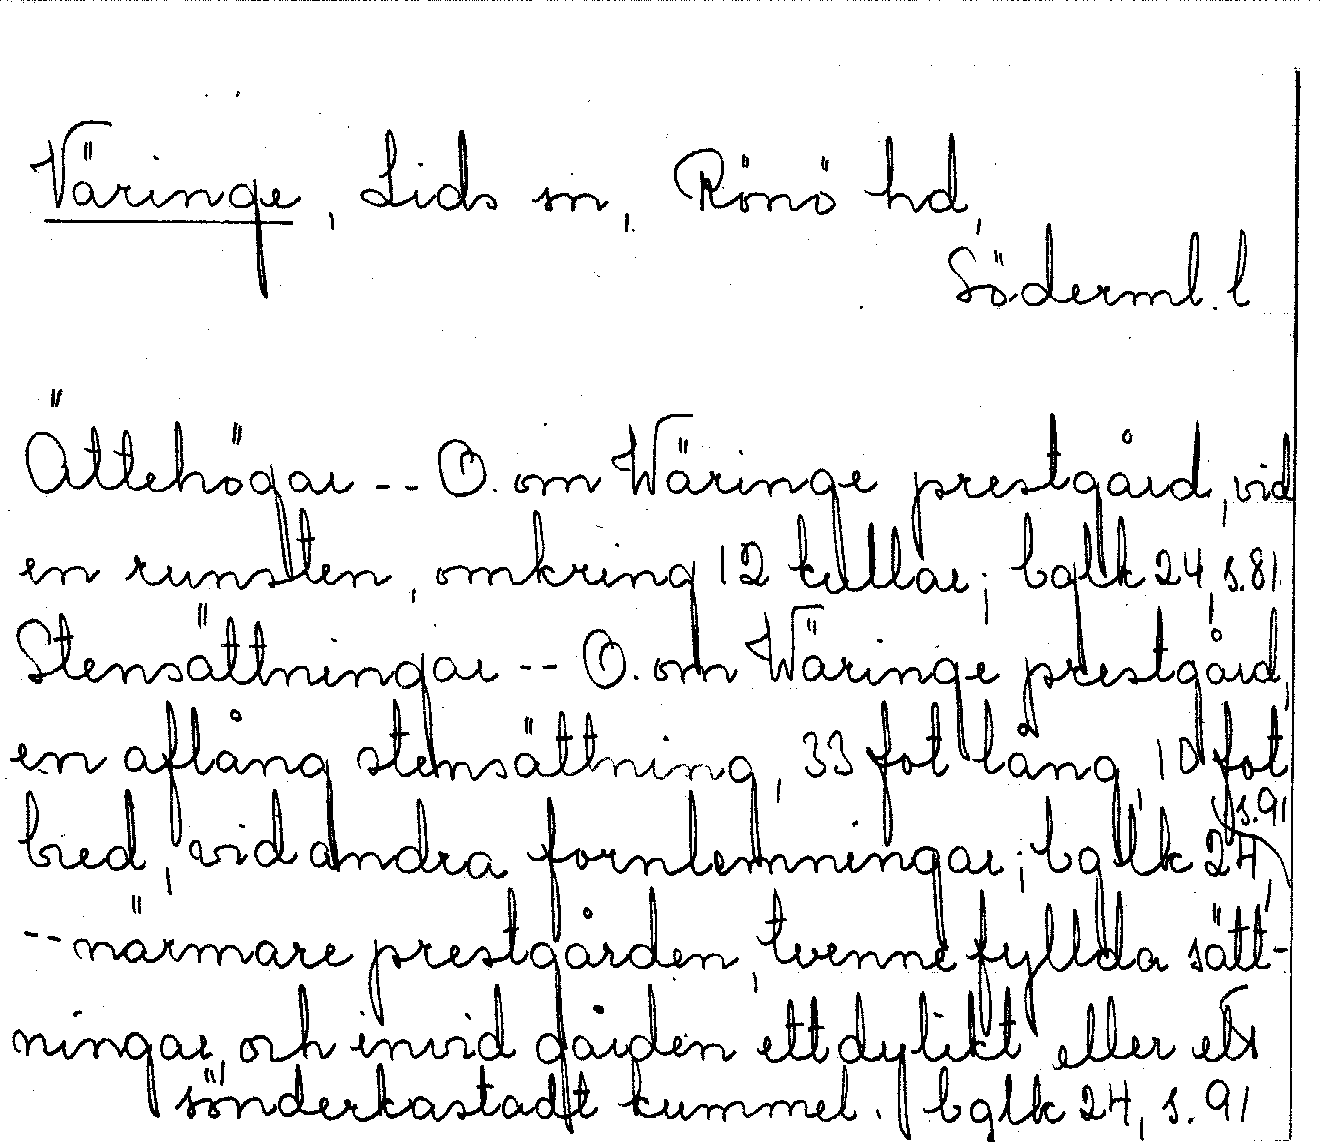 Väringe, Lids sn, Rönö hd,
Söderml. l
Ättehögar -- O. om Wäringe prestgård, vid
en runsten, omkring 12 kullar; bglk 24, s. 81
Stensättningar -- O. om Wäringe prestgård,
en aflång stensättning, 33 fot lång, 10 fot
bred, vid andra fornlemningar; bglk 24, s. 91
-- närmare prestgården, tvenne fyllda sätt-
ningar, och invid gården ett dylikt eller ett
sönderkastadt kummel. bglk 24, s. 91